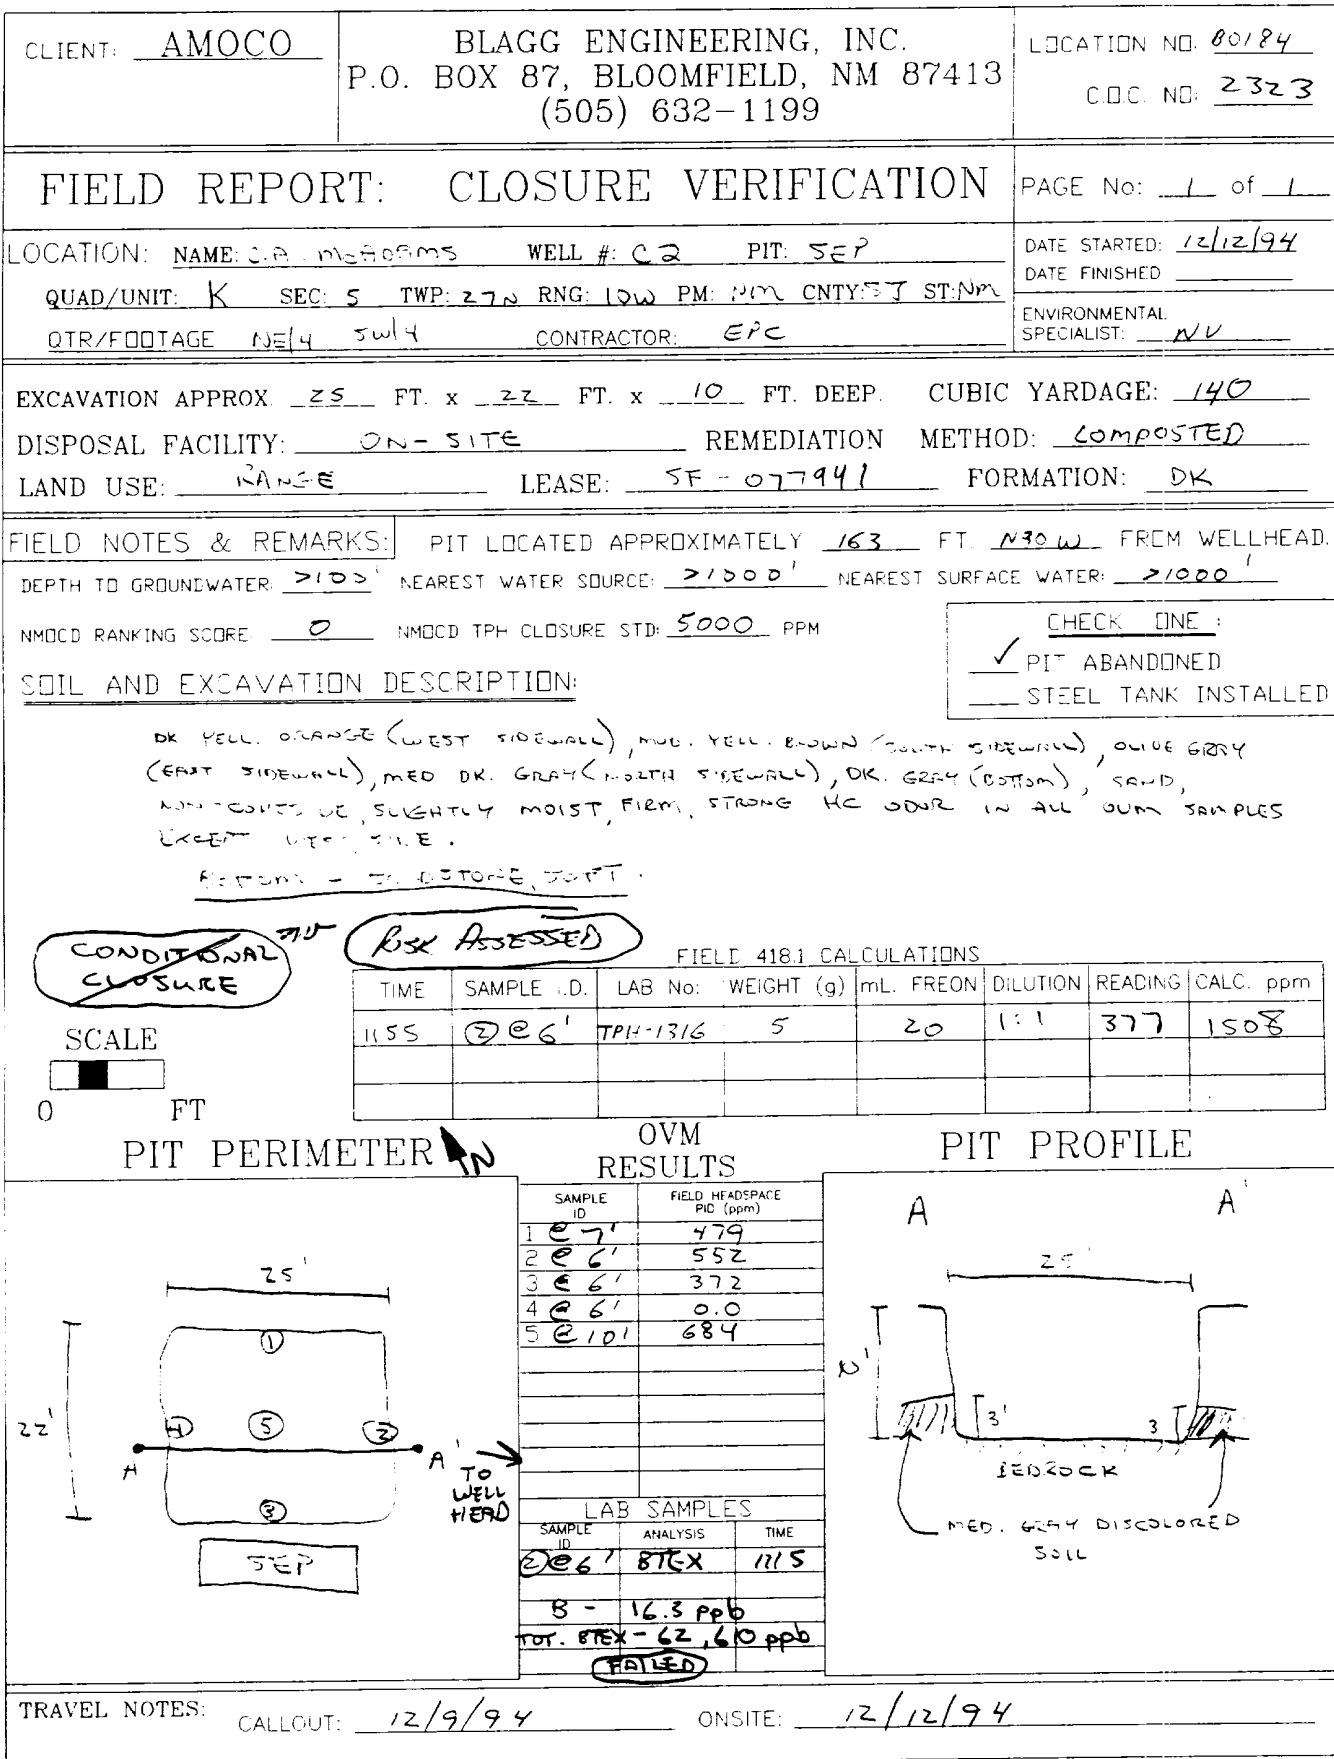 CLIENT: AMOCO
BLAGG ENGINEERING, INC.
P.O. BOX 87, BLOOMFIELD, NM 87413
(505) 632-1199
LOCATION NO. B0184
C.O.C. NO: 2323
FIELD REPORT: CLOSURE VERIFICATION
PAGE No: 1 of 1
LOCATION: NAME: McADAMS WELL #: C2 PIT: SEP
QUAD/UNIT: K SEC: 5 TWP: 27N RNG: 10W PM: NM CNTY: SJ ST: NM
QTR/FOOTAGE NE/4 SW/4 CONTRACTOR: EPC
DATE STARTED: 12/12/94
DATE FINISHED
ENVIRONMENTAL
SPECIALIST: NV
EXCAVATION APPROX. 25 FT. x 22 FT. x 10 FT. DEEP. CUBIC YARDAGE: 140
DISPOSAL FACILITY: ON-SITE REMEDIATION METHOD: COMPOSTED
LAND USE: RANGE LEASE: SF-077941 FORMATION: DK
FIELD NOTES & REMARKS: PIT LOCATED APPROXIMATELY 163 FT. N30W FROM WELLHEAD.
DEPTH TO GROUNDWATER: >100' NEAREST WATER SOURCE: >1000' NEAREST SURFACE WATER: >1000'
NMOCD RANKING SCORE 0 NMOCD TPH CLOSURE STD: 5000 PPM
CHECK ONE :
✓ PIT ABANDONED
STEEL TANK INSTALLED
SOIL AND EXCAVATION DESCRIPTION:
DK YELL. ORANGE (WEST SIDEWALL), MOD. YELL. BROWN (SOUTH SIDEWALL), OLIVE GRAY
(EAST SIDEWALL), MED DK. GRAY (NORTH SIDEWALL), DK. GRAY (BOTTOM), SAND,
NON-COHESIVE, SLIGHTLY MOIST, FIRM, STRONG HC ODOR IN ALL OVM SAMPLES
EXCEPT WEST SIDE.
BOTTOM - SANDSTONE, SOFT.
CONDITIONAL
CLOSURE
RISK ASSESSED
FIELD 418.1 CALCULATIONS
TIME SAMPLE I.D. LAB No: WEIGHT (g) mL. FREON DILUTION READING CALC. ppm
1155 ② @ 6' TPH-1316 5 20 1:1 377 1508
SCALE
0 FT
PIT PERIMETER N
OVM
RESULTS
PIT PROFILE
SAMPLE ID FIELD HEADSPACE PID (ppm)
1 @ 7' 479
2 @ 6' 552
3 @ 6' 372
4 @ 6' 0.0
5 @ 10' 684
25'
22'
①
④ ⑤ ②
A A'
③
SEP
TO
WELL
HEAD
LAB SAMPLES
SAMPLE ID ANALYSIS TIME
② @ 6' BTEX 1115
B - 16.3 ppb
TOT. BTEX - 62,610 ppb
FAILED
A A'
25'
3' 3'
BEDROCK
MED. GRAY DISCOLORED
SOIL
TRAVEL NOTES: CALLOUT: 12/9/94 ONSITE: 12/12/94